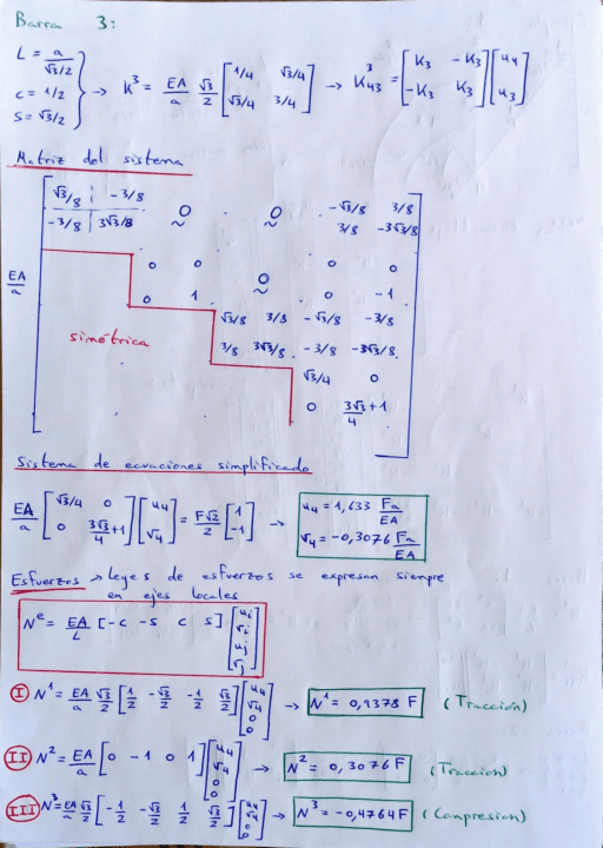 Barra 3:
L = a/(√3/2)
c = 1/2
s = √3/2
→ K³ = EA/a √3/2 [1/4 √3/4; √3/4 3/4] → K₄₃³ = [K₃ -K₃; -K₃ K₃] [u₄; u₃]
Matriz del sistema
EA/a
√3/8 -3/8 0 0 -√3/8 3/8
-3/8 3√3/8 3/8 -3√3/8
0 0 0 0 0
0 1 0 -1
√3/8 3/8 -√3/8 -3/8
3/8 3√3/8 -3/8 -3√3/8
simétrica
√3/4 0
0 3√3/4 +1
Sistema de ecuaciones simplificado
EA/a [√3/4 0; 0 3√3/4+1] [u₄; v₄] = F√2/2 [1; -1] →
u₄ = 1,633 Fa/EA
v₄ = -0,3076 Fa/EA
Esfuerzos → leyes de esfuerzos se expresan siempre
en ejes locales
Nᵉ = EA/L [-c -s c s]
I N¹ = EA/a √3/2 [1/2 -√3/2 -1/2 √3/2] [u₄; v₄; 0; 0] → N¹ = 0,9378 F (Tracción)
II N² = EA/a [0 -1 0 1] [u₄; v₄; 0; 0] → N² = 0,3076 F (Tracción)
III N³ = EA/a √3/2 [-1/2 -√3/2 1/2 √3/2] [u₄; v₄; 0; 0] → N³ = -0,4764F (Compresion)